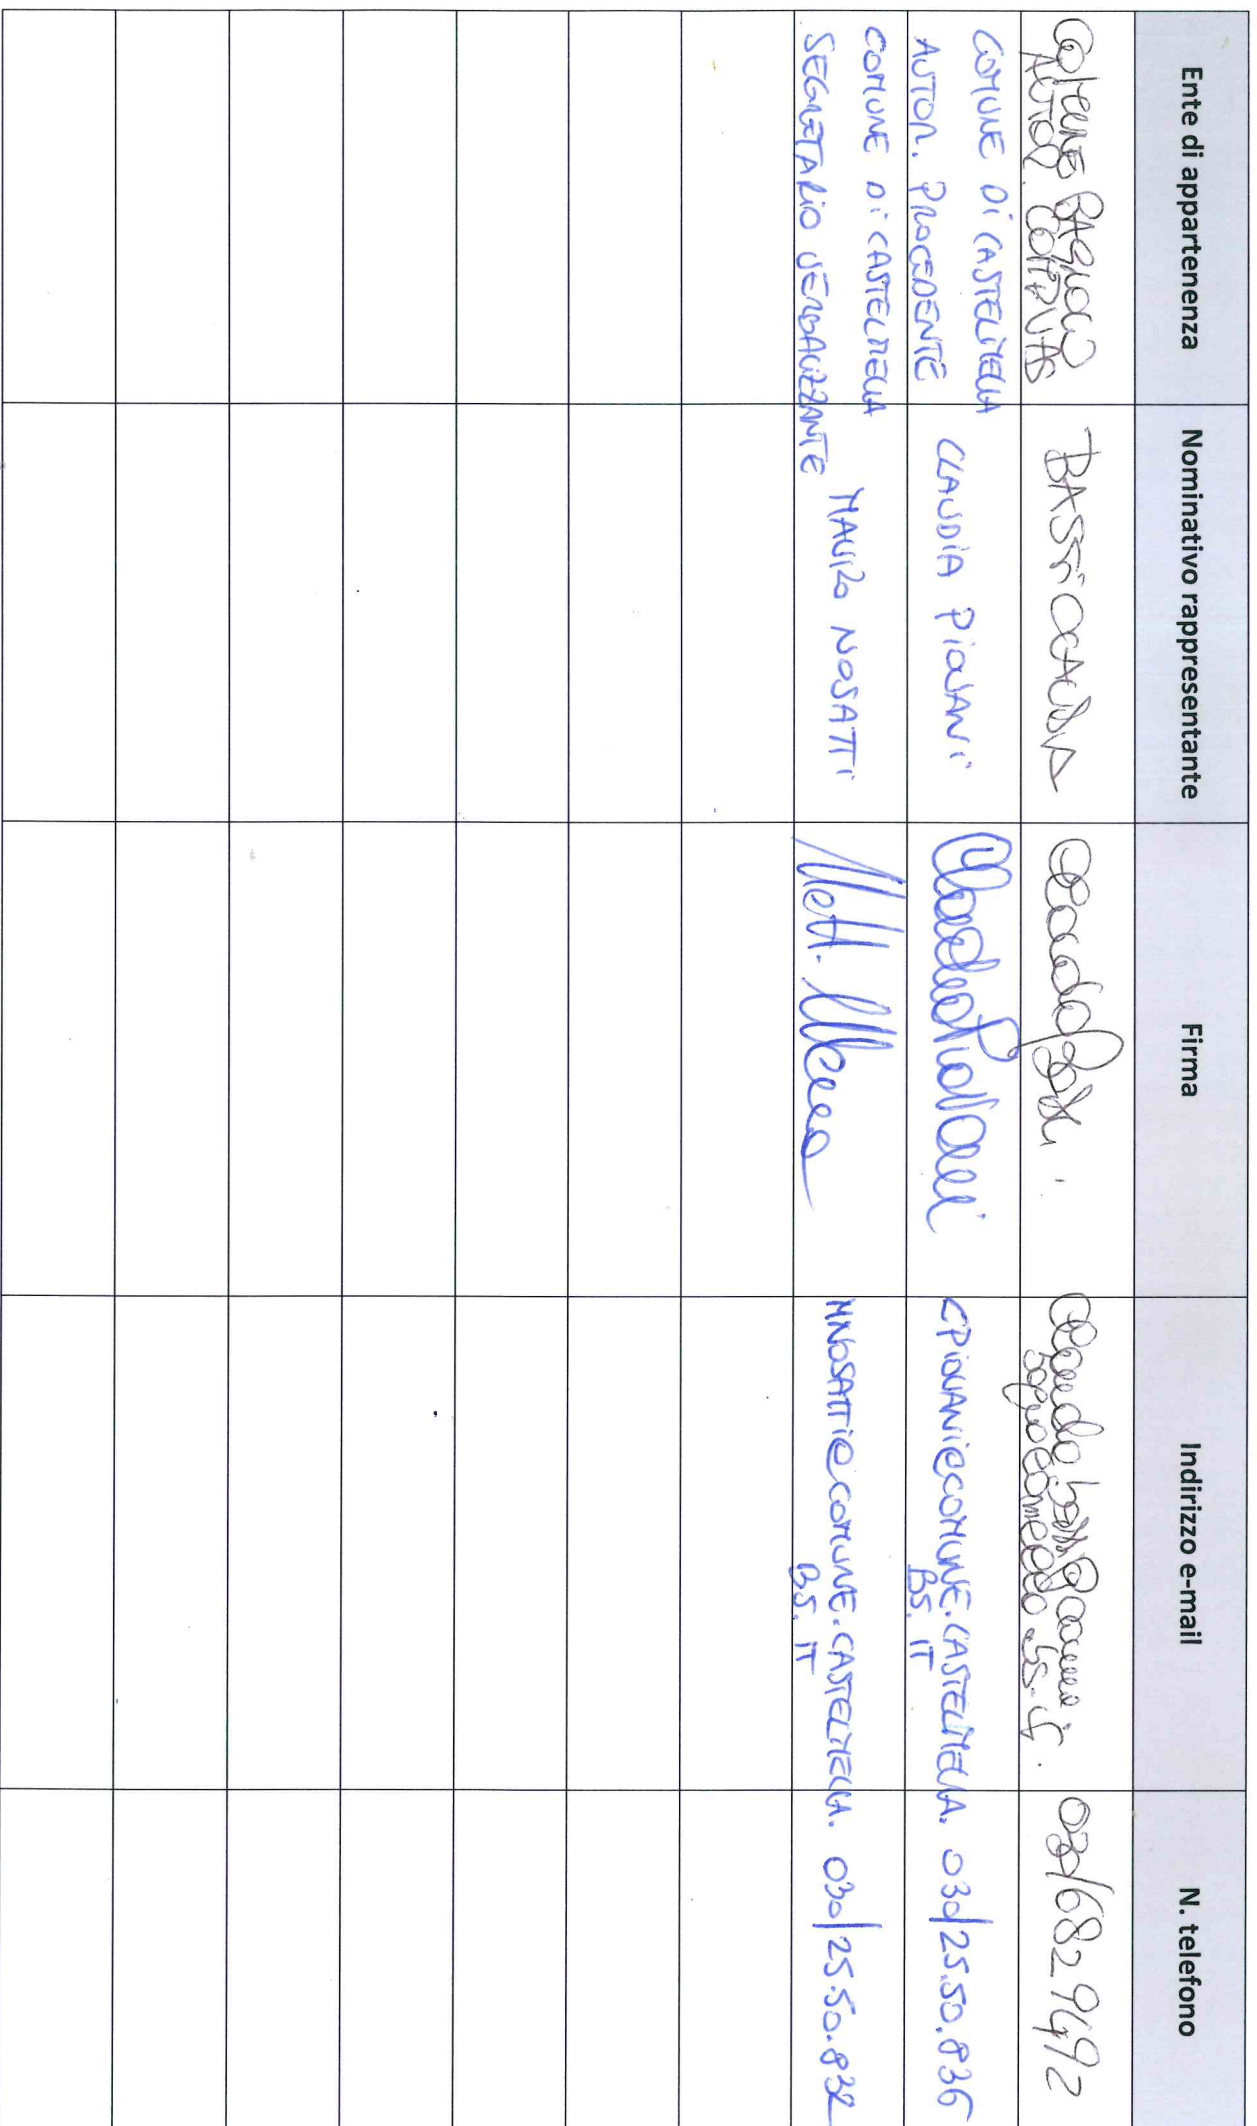 Ente di appartenenza Nominativo rappresentante Firma Indirizzo e-mail N. telefono
BAGNOLO
AUTOR. COMP VAS
BASSI CLAUDIA
030/6829492
COMUNE Di CASTELMELLA
AUTOR. PROCEDENTE
CLAUDIA PIOVANI
Claudia Piovani
CPIOVANI@COMUNE.CASTELMELLA.
BS.IT
030/25.50.836
COMUNE Di CASTELMELLA
SEGRETARIO VERBALIZZANTE
MAURO NOSATTI
MNOSATTI@COMUNE.CASTELMELLA.
BS.IT
030/25.50.832